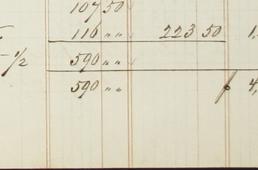 107 50
116 " " 223 50 1,
- 1/2 590 " "
590 " " 4,